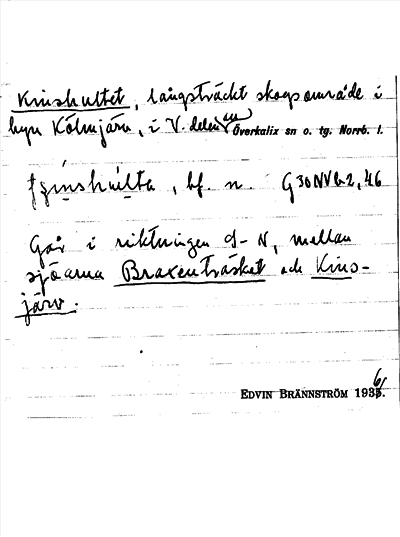 Kinshultet, långsträckt skogsområde i
byn Kölmjärv, i V. delen av Överkalix sn o. tg. Norrb. l.
bf. n. G 30 NV b 2, 46
Går i riktningen S-N, mellan
sjöarna Braxenträsket och Kins-
järv.
EDVIN BRÄNNSTRÖM 1936.